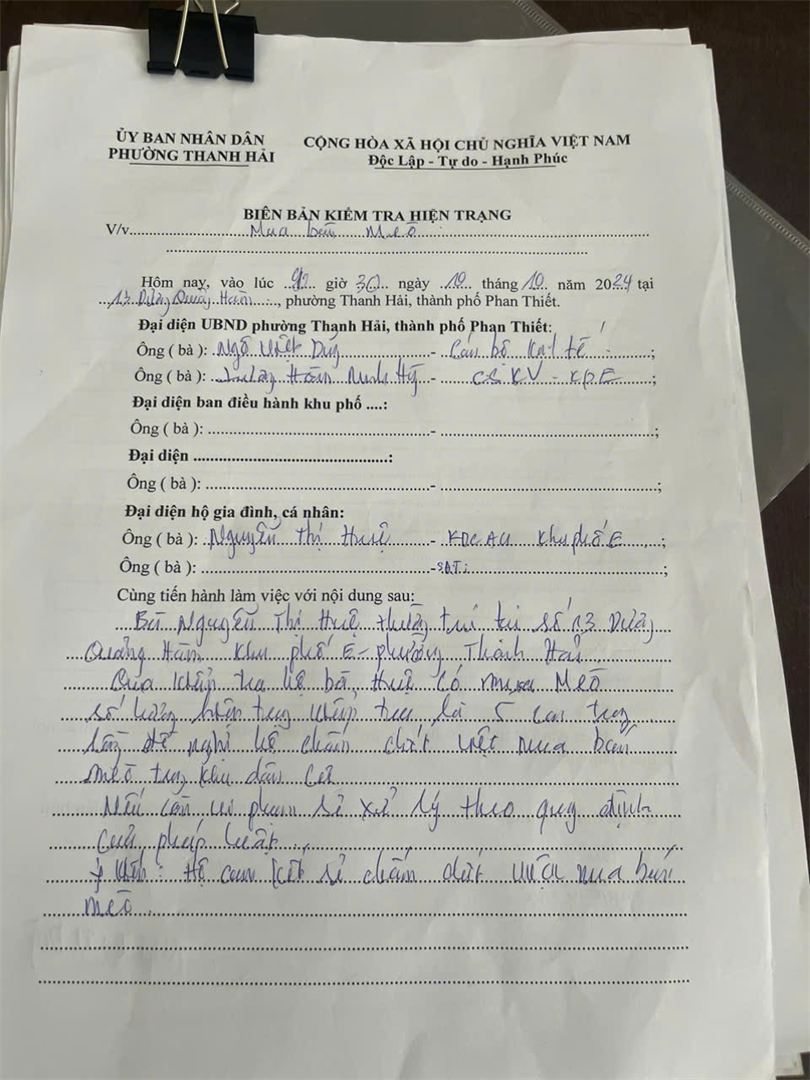 ỦY BAN NHÂN DÂN
PHƯỜNG THANH HẢI
CỘNG HÒA XÃ HỘI CHỦ NGHĨA VIỆT NAM
Độc Lập - Tự do - Hạnh Phúc
BIÊN BẢN KIỂM TRA HIỆN TRẠNG
V/v Mua bán Mèo
Hôm nay, vào lúc 9 giờ 30 ngày 10 tháng 10 năm 2024 tại
13 Dương Quảng Hàm, phường Thanh Hải, thành phố Phan Thiết.
Đại diện UBND phường Thanh Hải, thành phố Phan Thiết:
Ông ( bà ): Ngô Việt - Cán bộ Kinh tế ;
Ông ( bà ): - CSKV - KPE ;
Đại diện ban điều hành khu phố ....:
Ông ( bà ): - ;
Đại diện :
Ông ( bà ): - ;
Đại diện hộ gia đình, cá nhân:
Ông ( bà ): Nguyễn Thị Huệ - KDC A4 Khu phố E ;
Ông ( bà ): - SĐT: ;
Cùng tiến hành làm việc với nội dung sau:
Bà Nguyễn Thị Huệ thường trú tại số 13 Dương
Quảng Hàm Khu phố E - phường Thanh Hải
Qua kiểm tra hộ bà Huệ có mua Mèo
số lượng hiện trạng kiểm tra là 5 con trong
lồng đề nghị hộ chấm dứt việc mua bán
mèo trong khu dân cư
Nếu còn vi phạm sẽ xử lý theo quy định
của pháp luật.
Ý kiến: Hộ cam kết sẽ chấm dứt việc mua bán
mèo.